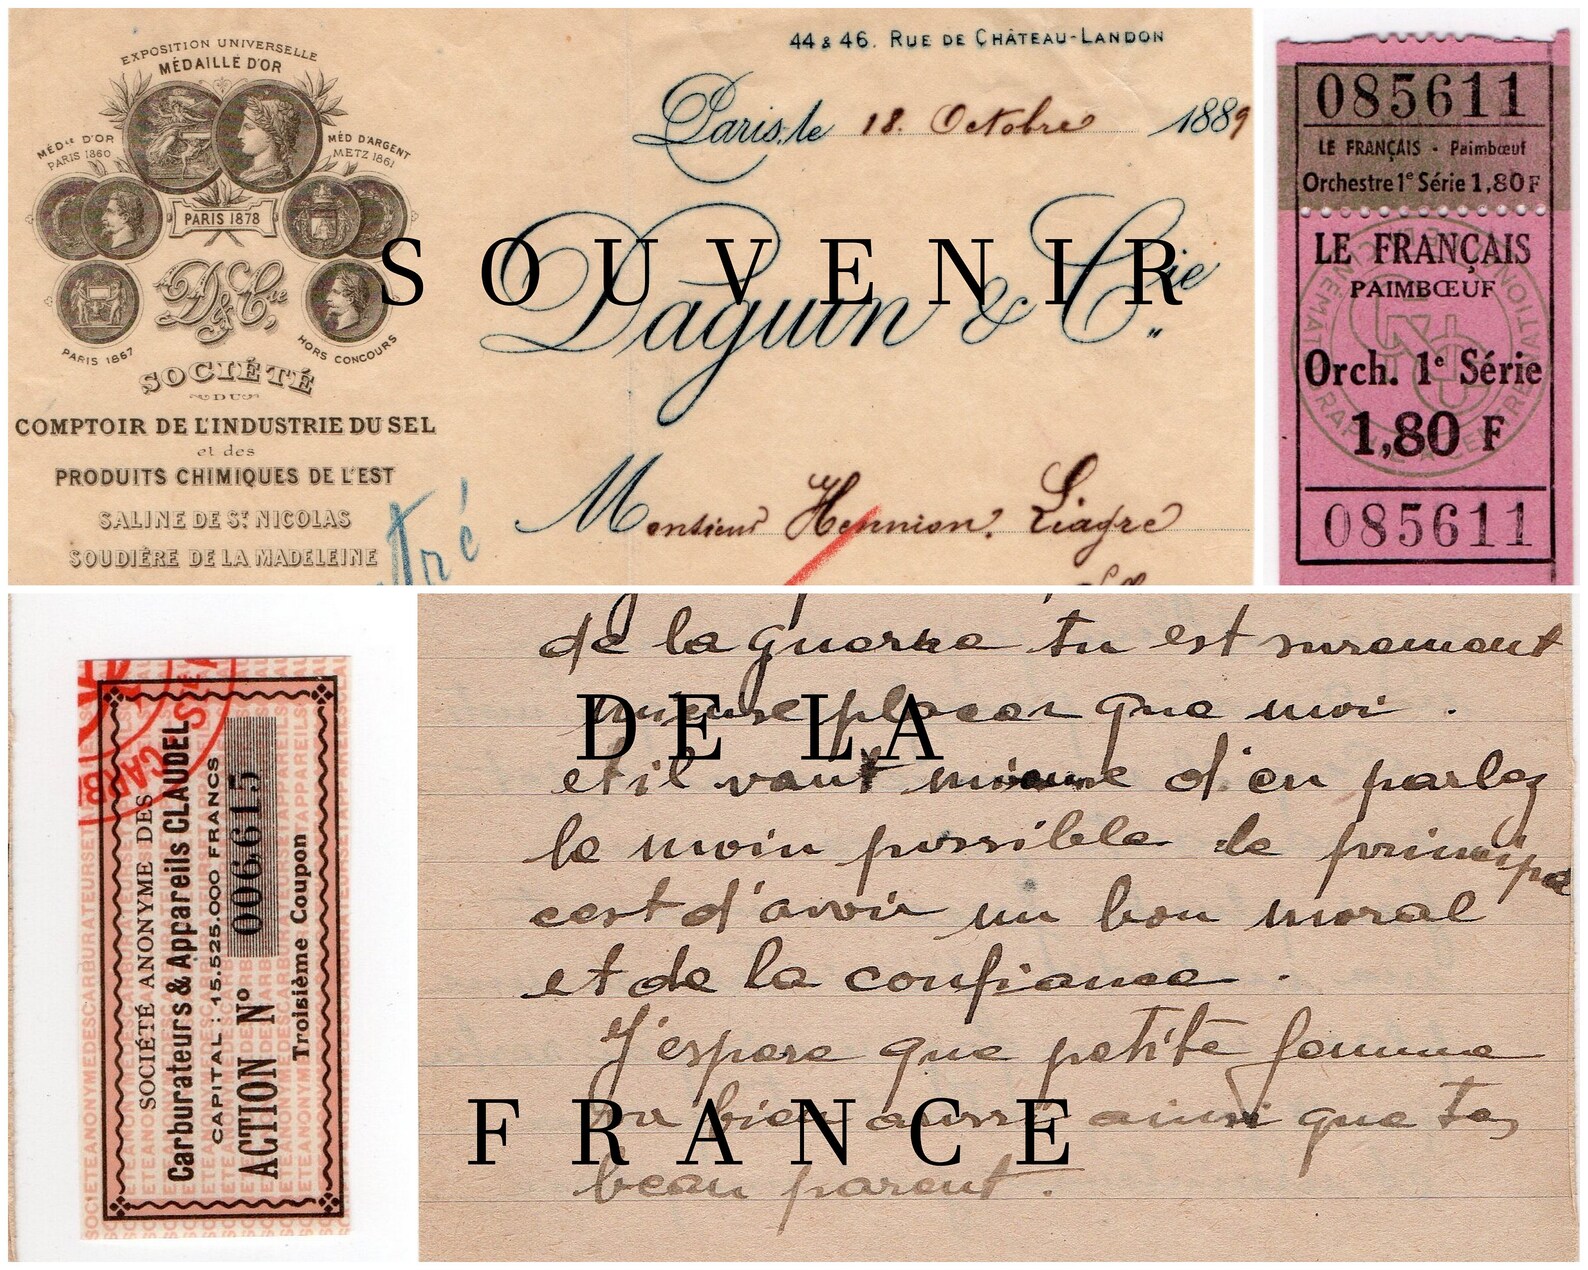 44 & 46. RUE DE CHÂTEAU-LANDON
Paris, le 18. Octobre 1889
EXPOSITION UNIVERSELLE
MÉDAILLE D'OR
MÉD^LE D'OR
PARIS 1860
MÉD D'ARGENT
METZ 1861
PARIS 1878
D & C^ie,
PARIS 1867
HORS CONCOURS
SOCIÉTÉ
DU
COMPTOIR DE L'INDUSTRIE DU SEL
et des
PRODUITS CHIMIQUES DE L'EST
SALINE DE S^T NICOLAS
SOUDIÈRE DE LA MADELEINE
Daguin & C^ie
Monsieur Hennion. Liagre
SOUVENIR
085611
LE FRANÇAIS - Paimbœuf
Orchestre 1e Série 1,80 F
LE FRANÇAIS
PAIMBŒUF
Orch. 1e Série
1,80 F
085611
SOCIÉTÉ ANONYME DES
Carburateurs & Appareils CLAUDEL
CAPITAL : 15.525.000 FRANCS
ACTION N° 006615
Troisième Coupon
de la guerre tu est surement
mieuse placer que moi .
et il vaut d'en parlez
le moin possible le principa
cest d'avoir un bon moral
et de la confiance .
J'espere que petite femme
va bien aussi ainsi que tes
beau parent .
DE LA
FRANCE